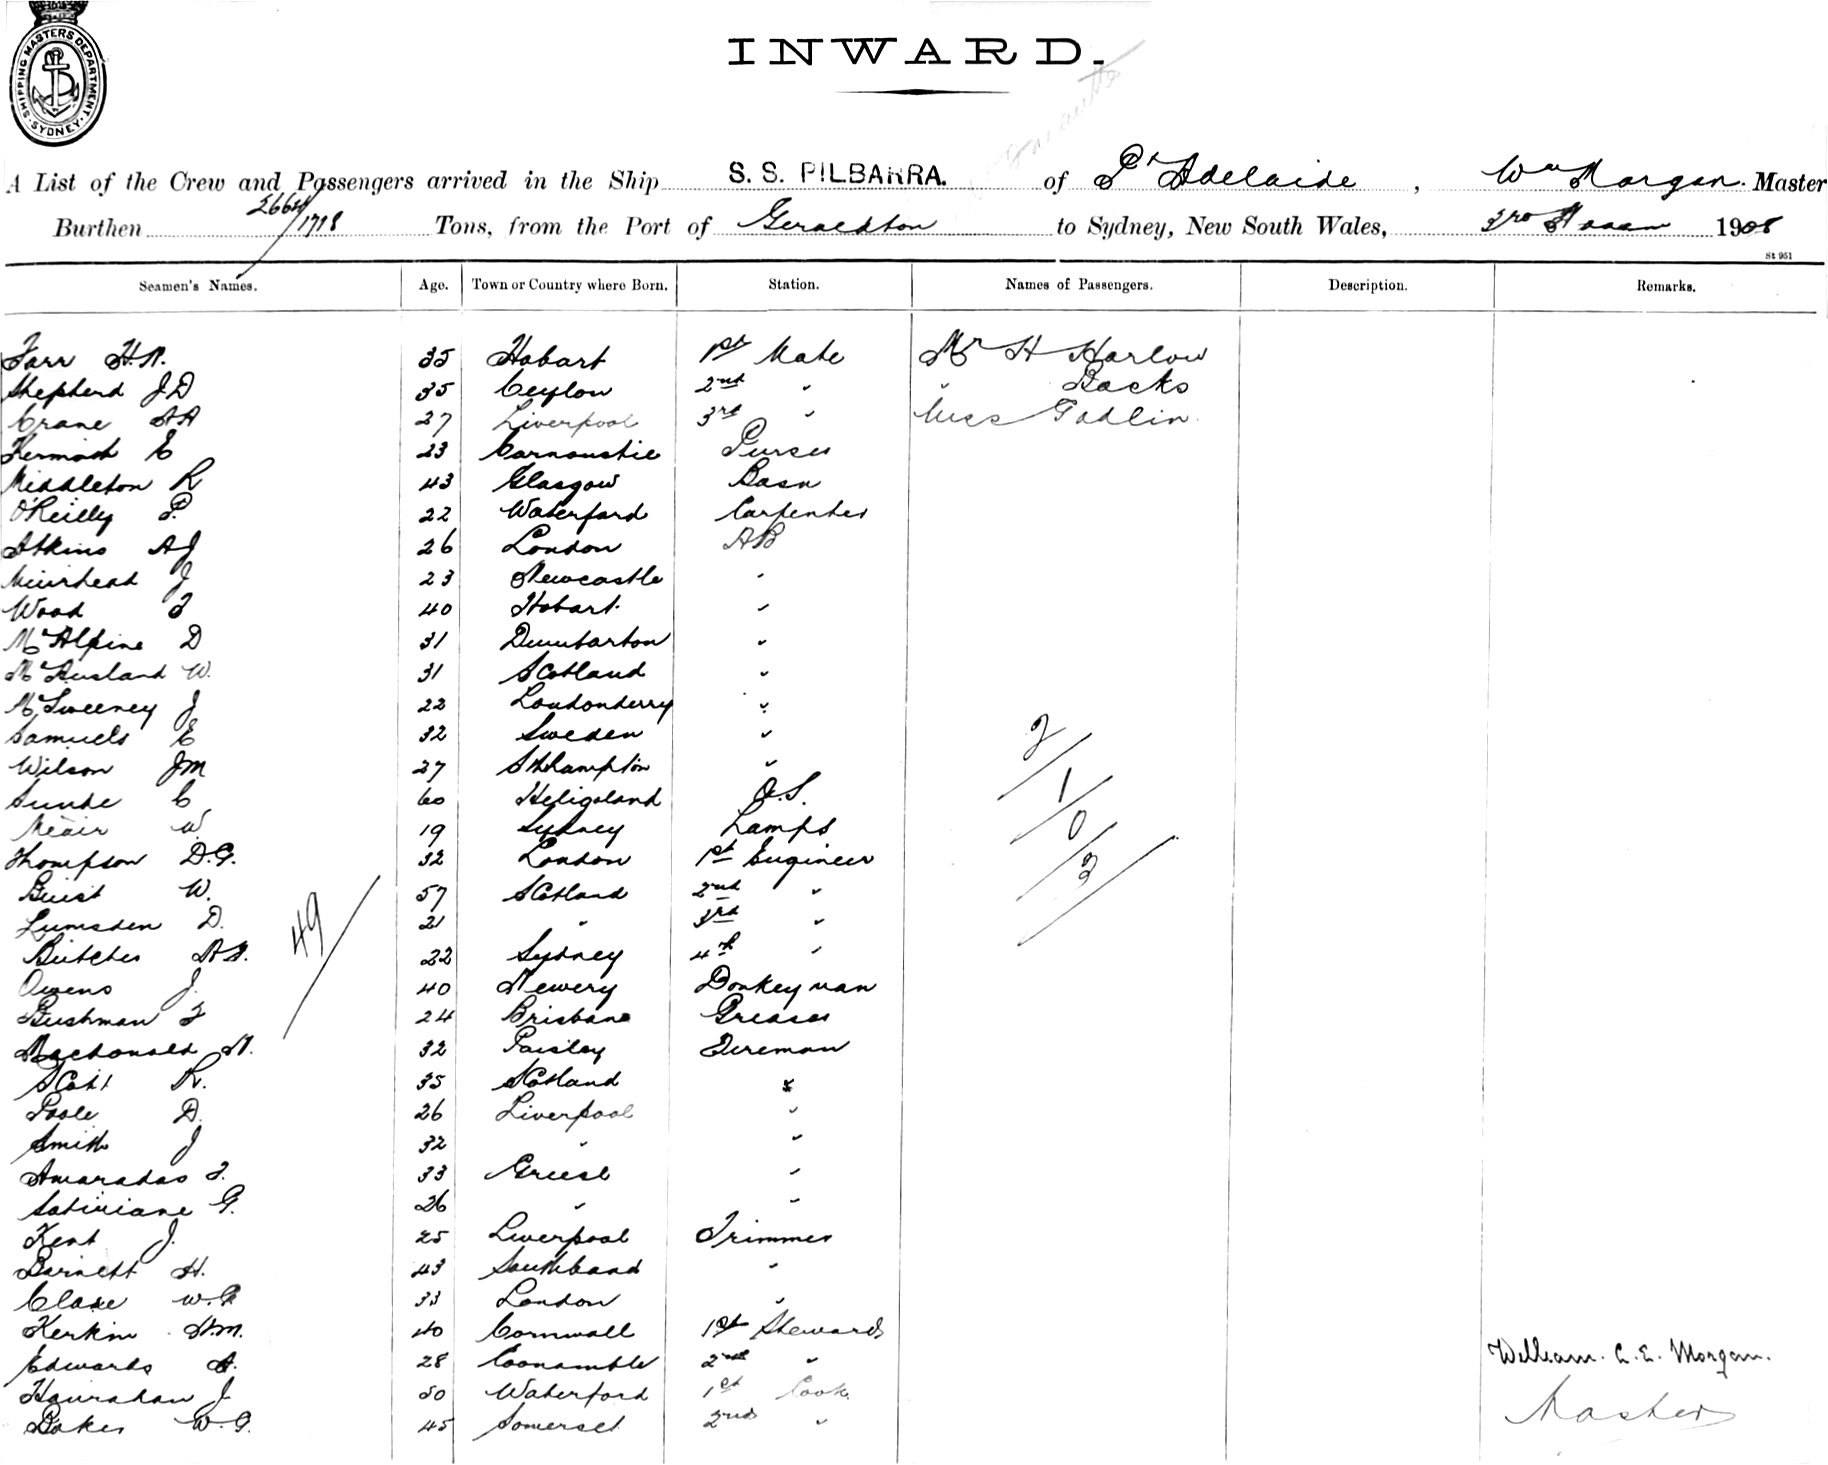 SHIPPING MASTERS DEPARTMENT. SYDNEY.
INWARD.
A List of the Crew and Passengers arrived in the Ship S. S. PILBARRA. of Pt Adelaide, Wm Morgan. Master
Burthen 2664/1718 Tons, from the Port of Geraldton to Sydney, New South Wales, 3rd 1908
St 951
Seamen's Names. Age. Town or Country where Born. Station. Names of Passengers. Description. Remarks.
Farr H.N. 35 Hobart 1st Mate Mr H Harlow
Shepherd J D 35 Ceylon 2nd " " Backs
Crane A A 27 Liverpool 3rd " Miss Godlin
Kermath E 23 Carnoustie Purser
Middleton R 43 Glasgow Bosn
O'Reilly P. 22 Waterford Carpenter
Atkins A J 26 London AB
Muirhead J 23 Newcastle "
Wood F 40 Hobart "
McAlpine D 31 Dumbarton "
McAusland W. 31 Scotland "
McSweeney J 22 Londonderry "
Samuels E 32 Sweden "
Wilson J M 27 Sthhampton "
Sunde C 60 Heligoland O.S.
W. 19 Sydney Lamps
Thompson D.G. 32 London 1st Engineer
Buist W. 57 Scotland 2nd "
Lumsden D. 21 " 3rd "
Butcher 22 Sydney 4th "
Owens J. 40 Newery Donkeyman
Bushman F 24 Brisbane Greaser
Macdonald N. 32 Paisley Fireman
Scott R. 35 Scotland "
Poole D. 26 Liverpool "
Smith J 32 " "
Amaradas F. 33 Greese "
Sotiriane G. 26 " "
Kent J. 25 Liverpool Trimmer
Barnett H. 43 "
Clare W.G 33 London "
Kerkin H.M. 40 Cornwall 1st Stewards
Edwards A. 28 Coonamble 2nd "
Hanrahan J 50 Waterford 1st Cook
Baker W.G. 45 Somerset 2nd "
49/
2/
1/
0/
3/
William. C. E. Morgan.
Master